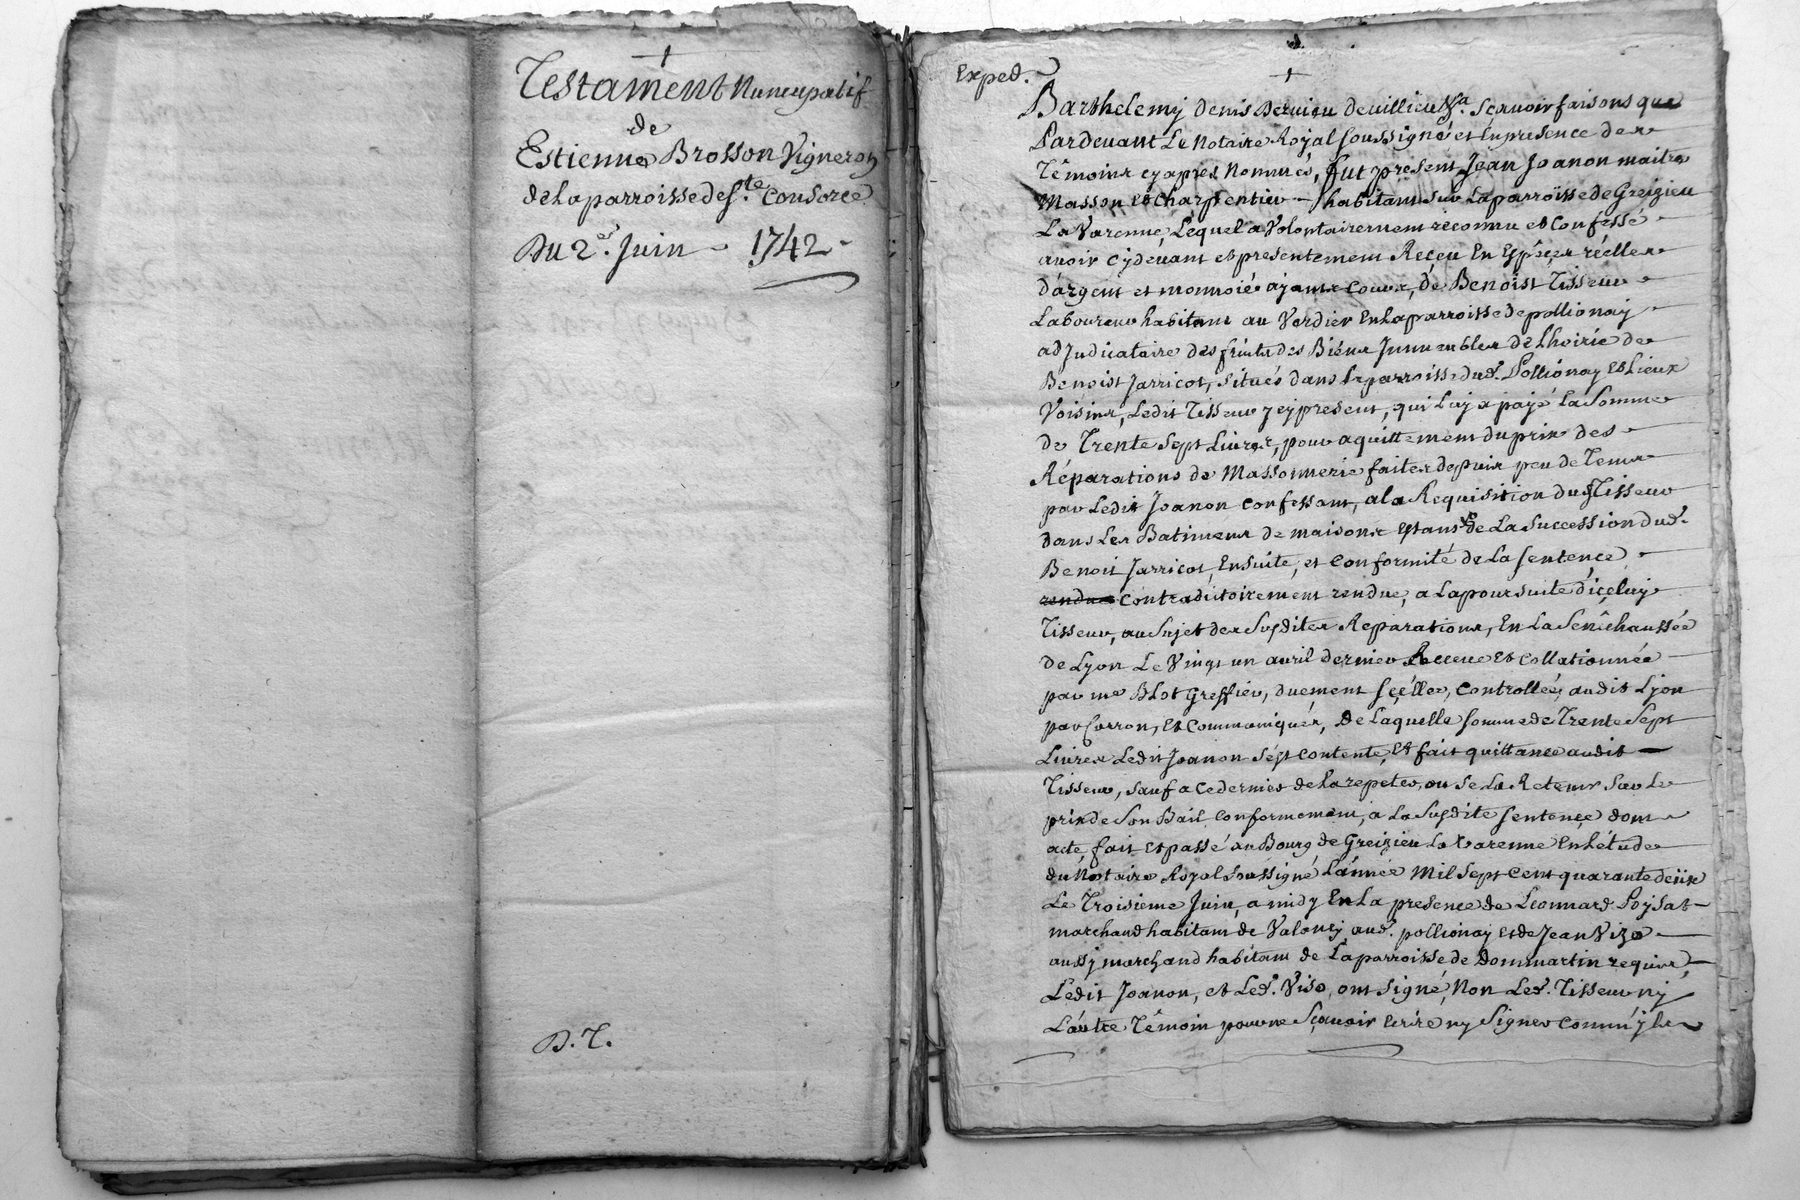 Testament Nuncupatif
de
Estienne Brosson Vigneron
de la parroisse de Ste. Consorce
Du 2e. Juin 1742
D.T.
Exped.
Barthelemy denis Dervieu de villieu &a. Sçavoir faisons que
Pardevant Le Notaire Royal soussigné et En presence des
Têmoins cy apres Nommés, fut present Jean Joanon maitre
Masson et Charpentier habitant sur La parroisse de Greizieu
La Varenne, Lequel a Volontairement reconnu et Confessé
avoir cydevant et presentement Receu En Espêces réelles
d'argent et monnoié ayants cours, de Benoist Tisseur
Laboureur habitant au Verdier En La parroisse de pollionay
adjudicataire des fruits des Biens Immeubles de L'hoirie de
Benoist Jarricot, situés dans la parroisse dud. Pollionay et Lieux
Voisins, Ledit Tisseur y cy present, qui Luy a payé La Somme
de Trente Sept Livres, pour aquittement du prix des
Réparations de Massonnerie faites depuis peu de Tems
par Ledit Joanon Confessant, a la Requisition dud. Tisseur
dans Les Batimens de maisons Estans de La Succession dud.
Benoit Jarricot, Ensuite, et Conformité de La sentence
rendue Contradictoirement rendue, a La poursuite d'içeluy
Tisseur, au Sujet des Susdites Reparations, En La Senêchaussée
de Lyon Le Vingt un avril dernier Receue et Collationnée
par me Blot Greffier, duement sçéllée, Controllée, audit Lyon
par Carron, et Communiquée, de Laquelle somme de Trente Sept
Livres Ledit Joanon s'est contenté, et fait quittance audit
Tisseur, sauf a ce dernier de La repeter, ou se La Retenir Sur Le
prix de Son Bail Conformement, a La Susdite sentençe dont
acte, fait et passé au Bourg de Greizieu La Varenne En L'étude
du Notaire Royal Soussigné L'année Mil Sept Cent quarante deux
Le Troisieme Juin, a midy En La presence de Leonnard Poysat
marchand habitant de Valoncy aud. pollionay et de Jean Vizo
aussy marchand habitant de La parroisse de Dommartin requis,
Ledit Joanon, et Led. Viso, ont Signé, Non Led. Tisseur ny
L'autre Têmoin pour ne Sçavoir Ecrire ny Signer Comm'ils